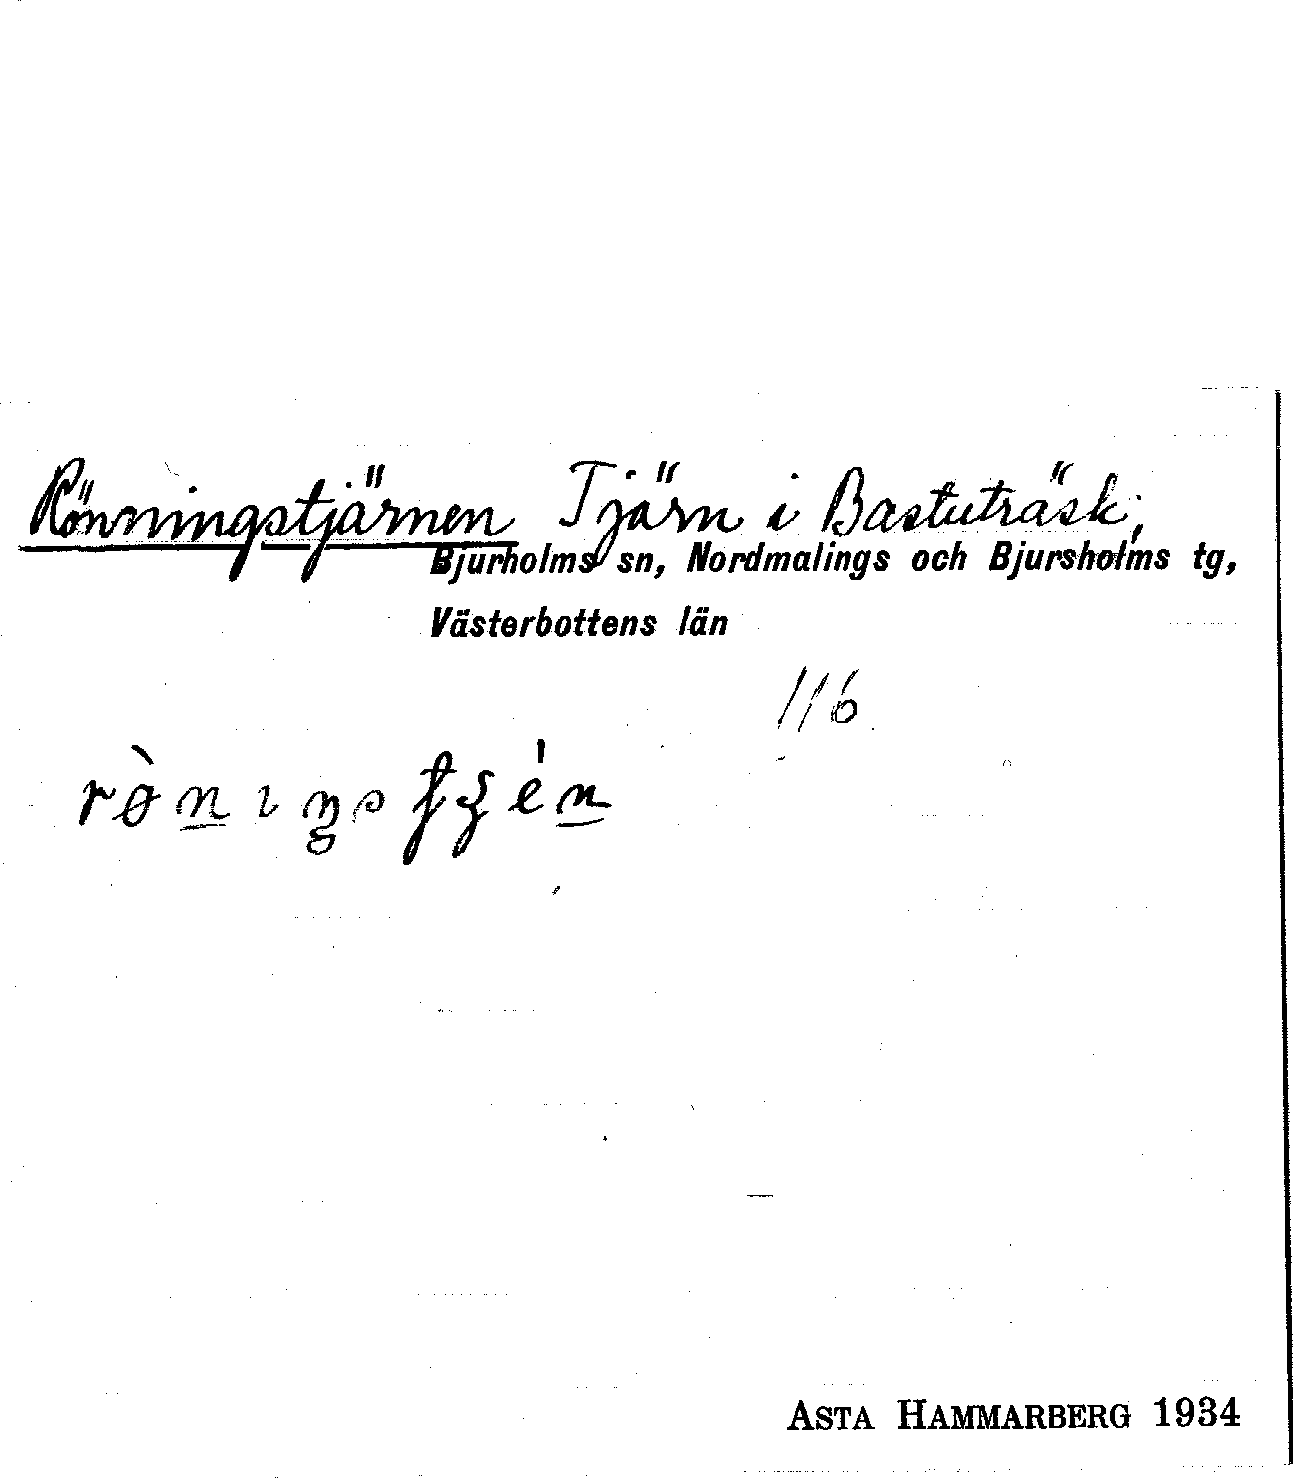 Rönningstjärnen Tjärn i Bastuträsk,
Bjurholms sn, Nordmalings och Bjursholms tg,
Västerbottens län
116
ASTA HAMMARBERG 1934